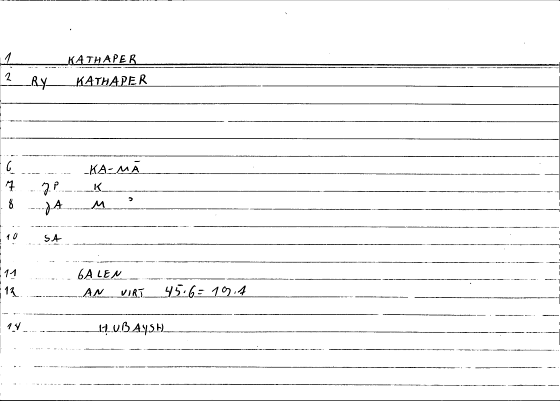 1 KATHAPER
2 RY KATHAPER
6 KA-MĀ
7 JP K
8 JA M ʾ
10 SA
11 GALEN
12 AN VIRT 45.6 = 19.1
14 ḤUBAYSH